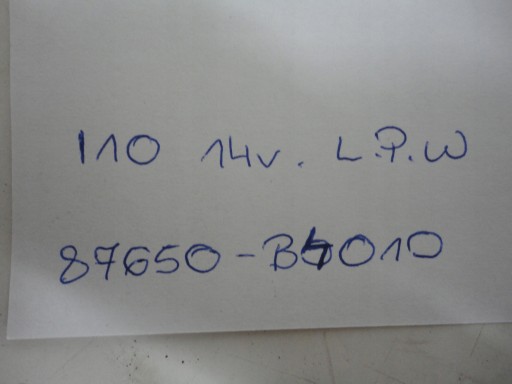 I10 14v. L.P.W
87650-B4010